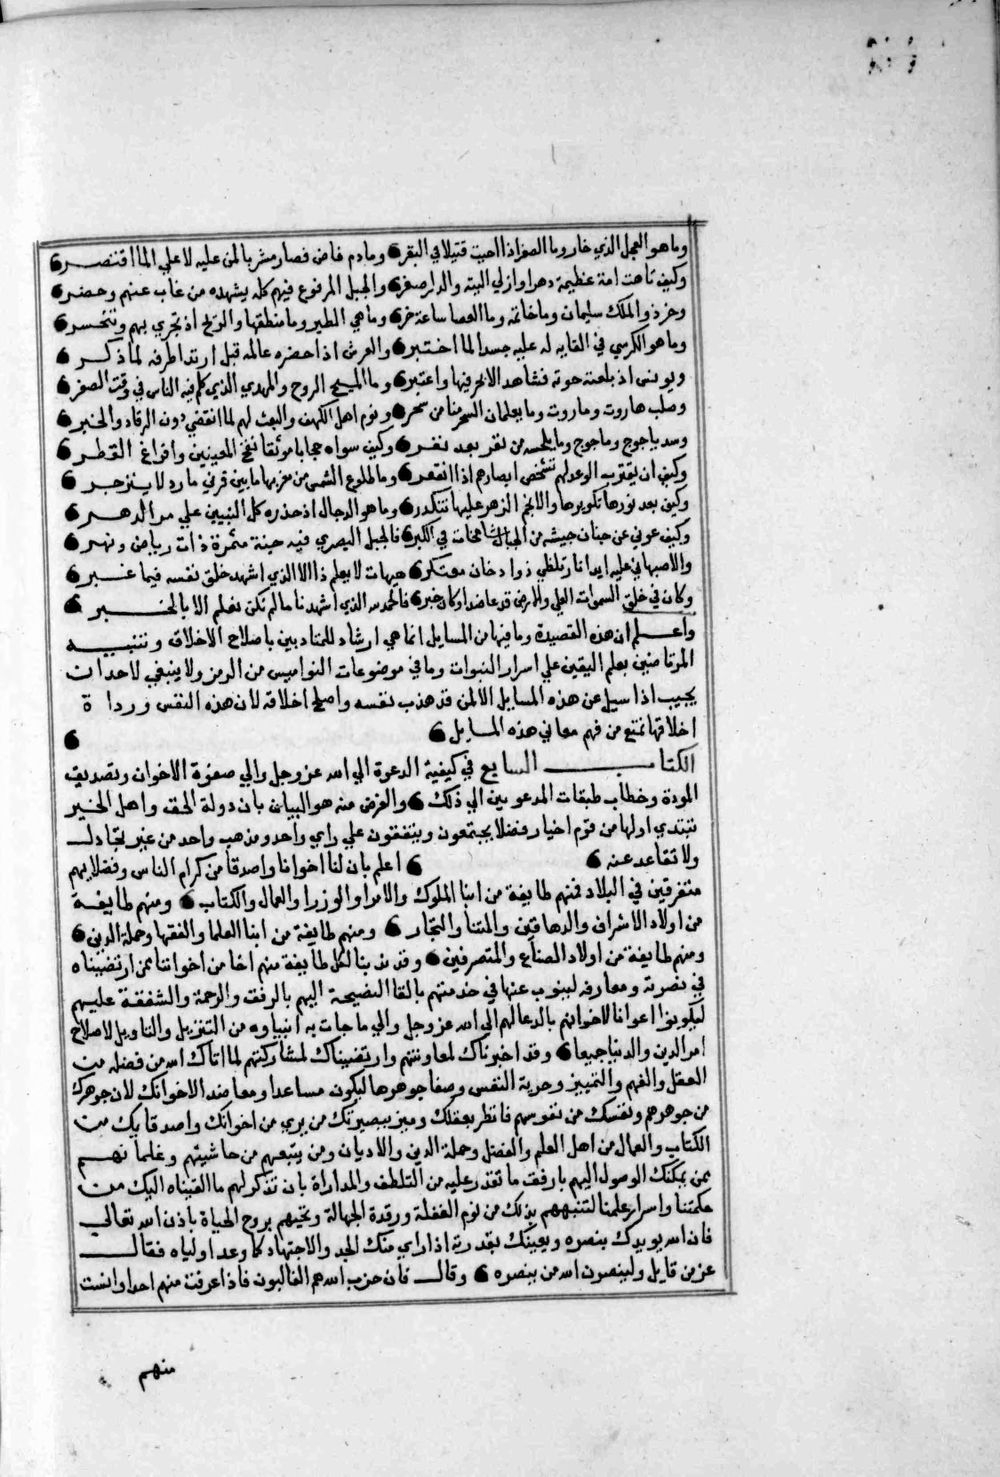 وما هو العجل الذي خار وما الصوراذا احيت قتيلا في البقر وما دم فاض فصار مشربا لمن عليه لا علي الما اقتصر
وكيف تاهت امة عظيمة دهرا وازلي البته والدار صغر والجبل المرفوع فيهم كله يشهده من غاب عنهم وحضر
والملك سليمان وما خاتمه وما العصا ساعة خر وما هي الطير وما منطقها والريح اذ تجري بهم وتنحسر
وما هو الكرسي في القايه له عليه جسدا لما اختبر والعرش اذ احضره عالمه قبل ارتداد طرفه لما ذكر
ويونس اذ بلعته حوته فشاهد الابحر فيها واعتبر وما المسيح الروح والمهدي الذي كلم فيه الناس في وقت الصغر
وصلب هاروت وماروت وما يعلمان السحر منا من سحر ونوم اهل الكهف والبعث لهم لما انقضي دون الرقاد والخبر
وسد ياجوج وماجوج وما يلحسه من نقر بعد نقر وكيف سواه حجابا موثقا نفخ المعينين وافراغ القطر
وكيف ان يقترب الوعد لهم تشخص ابصارهم اذا انقعر وما طلوع الشمس من مغربها ما بين قرني مارد لا ينزجر
وكيف بعد نورها تكويرها والانجم الزهر عليها تنكدر وما هو الدجال اذ حذره كل النبيين علي مر الدهر
وكيف عوفي عن جنان جيشه من الجبال شامخات في الكبر فالجبل البصري فيه جنة مثمرة ذات رياض ونهر
والاصبهاني عليه ابدا نار تلظي ذو ادخان معتكر هيهات لا يعلم ذا الا الذي اشهد خلق نفسه فيما غبر
وكان في خلق السموات العلي والارض قد عاضدا وكان خبر فالحمد لله الذي اشهدنا ما لم نكن نعلم الا بالخبر
واعلم ان هذه القصيدة وما فيها من المسايل انما هي ارشاد للمتادبين باصلاح الاخلاق وتنبيه
المرتاضين بعلم اليقين علي اسرار النبوات وما في موضوعات النواميس من الرمز ولا ينبغي لاحد ان
يجيب اذا سيل عن هذه المسايل الا لمن قد هذب نفسه واصلح اخلاقه لان هذه النفس ورداة
اخلاقها تمنع من فهم معاني هذه المسايل
الكتاب السابع في كيفية الدعوة الي الله عز وجل والي صفوة الاخوان وتصديق
المودة وخطاب طبقات المدعوين الي ذلك والغرض منه هو البيان بان دولة الحق واهل الخير
تبتدي اولها من قوم اخيار فضلا يجتمعون ويتفقون علي راي واحد ومذهب واحد من غير تجادل
ولا تقاعد عنه اعلم بان لنا اخوانا واصدقا من كرام الناس وفضلايهم
متفرقين في البلاد فمنهم طايفة من ابنا الملوك والامرا والوزرا والعمال والكتاب ومنهم طايفة
من اولاد الاشراف والدهاقين والتنا والتجار ومنهم طايفة من ابنا العلما والفقها وحملة الدين
ومنهم طايفة من اولاد الصناع والمتصرفين وقد ندبنا لكل طايفة منهم اخا من اخواننا ممن ارتضيناه
في بصرته ومعارفه لينوب عنها في خدمتهم بالقا النصيحة اليهم بالرفق والرحمة والشفقة عليهم
ليكونوا اعوانا لاخوانهم بالدعا لهم الي الله عز وجل والي ما جات به انبياوه من التنزيل والتاويل لاصلاح
امر الدين والدنيا جميعا وقد اخبرناك لمعاونتهم وارتضيناك لمشاركتهم لما اتاك الله من فضله من
العقل والفهم والتمييز وحرية النفس وصفا جوهرها ليكون مساعدا ومعاضدا لاخوانك لان جوهرك
من جوهرهم ونفسك من نفوسهم فانظر بعقلك وميز ببصيرتك من يري من اخوانك واصدقايك من
الكتاب والعمال من اهل العلم والفضل وحملة الدين والاديان ومن يتبعهم من حاشيتهم وغلمانهم
بمن يمكنك الوصول اليهم بارفق ما تقدر عليه من التلطف والمداراة بان تذكر لهم ما القيناه اليك من
حكمتنا واسرار علمنا لتنبههم بذلك من نوم الغفلة ورقدة الجهالة وتحييهم بروح الحياة باذن الله تعالي
فان الله يويدك بنصره ويعينك بقدرته اذا راي منك الجد والاجتهاد كما وعد اولياه فقال
عز من قايل ولينصرن الله من ينصره وقال فان حزب الله هم الغالبون فاذا عرفت منهم احدا وانست
منهم